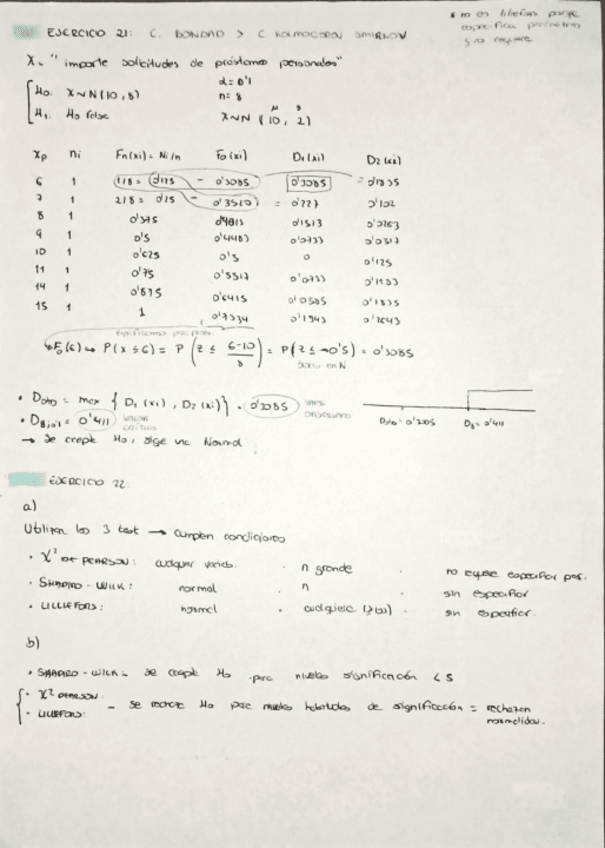 EJERCICIO 21: C. BONDAD > C. KOLMOGOROV SMIRNOV
* no es lilliefors porque
especifica parámetros
y no requiere
X = "importe solicitudes de préstamos personales"
H₀: X∼N(10,8)
α = 0'1
n = 8
H₁: H₀ false
X∼N (10, 2)
xp ni Fn(xi) = Ni/n F₀(xi) D₁(xi) D₂(xi)
6 1 1/8 = 0'125 - 0'3085 0'3085 = 0'1835
7 1 2/8 = 0'25 - 0'3520 = 0'227 0'102
8 1 0'375 0'4013 0'1513 0'0263
9 1 0'5 0'4483 0'0733 0'0517
10 1 0'625 0'5 0 0'125
11 1 0'75 0'5517 0'0733
14 1 0'875 0'6915 0'1835
15 1 1 0'7334
F₀(6) → P(X ≤ 6) = P (Z ≤ 6-10/8) = P(Z ≤ -0'5) = 0'3085
• Dobs = max { D₁(xi), D₂(xi)} = 0'3085 valor
D8;0'1 = 0'411 valor crítico
Dobs = 0'3085 D8 = 0'411
→ Se acepta H₀, sigue una Normal
EJERCICIO 22:
a)
Utilizan los 3 test → cumplen condiciones
• χ² DE PEARSON: cualquier • n grande no requiere especificar par.
• SHAPIRO - WILK: normal • n sin especificar
• LILLIEFORS: normal • cualquiera sin especificar.
b)
• SHAPIRO - WILK - se acepta H₀ para niveles significación < 5
• χ² PEARSON.
• LILLIEFORS: - Se rechaza H₀ para niveles habituales de significación = rechazan
normalidad.